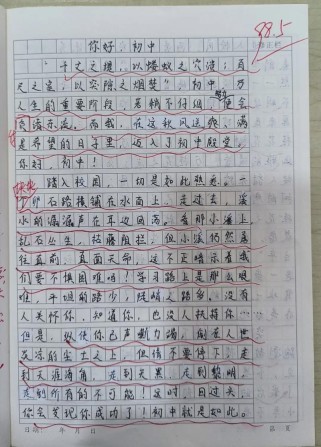 98.5
你好，初中
“千丈之堤，以蝼蚁之穴溃；百
尺之室，以突隙之烟焚”初中，乃
人生的重要阶段，若稍不仔细，便会
付诸东流。而我，在这秋风送爽，满
是希望的日子里，迈入了初中殿堂。
你好，初中！
踏入校园，一切是如此熟悉。一
卵石路横铺在水面上，走过去，溪
水的潺潺声在耳边回荡。看那小溪上
乱石丛生，枯藤阻拦，但小溪仍然
往直前，直面天命，这不正暗示着我
们要不惧困难吗！学习路上是那么艰
难，平坦的路少，陡峭之路多，没有
人关怀你，知道你，也没人扶持你…
但是，纵使你已声嘶力竭，倒在人世
灰凉的尘土之上，但请不要停下，走
到天涯海角，走到天黑，走到黎明，
走到所有的不可能！这时，回过头，
你会发现你成功了！初中就是如此。
日期： 年 月 日
第 页